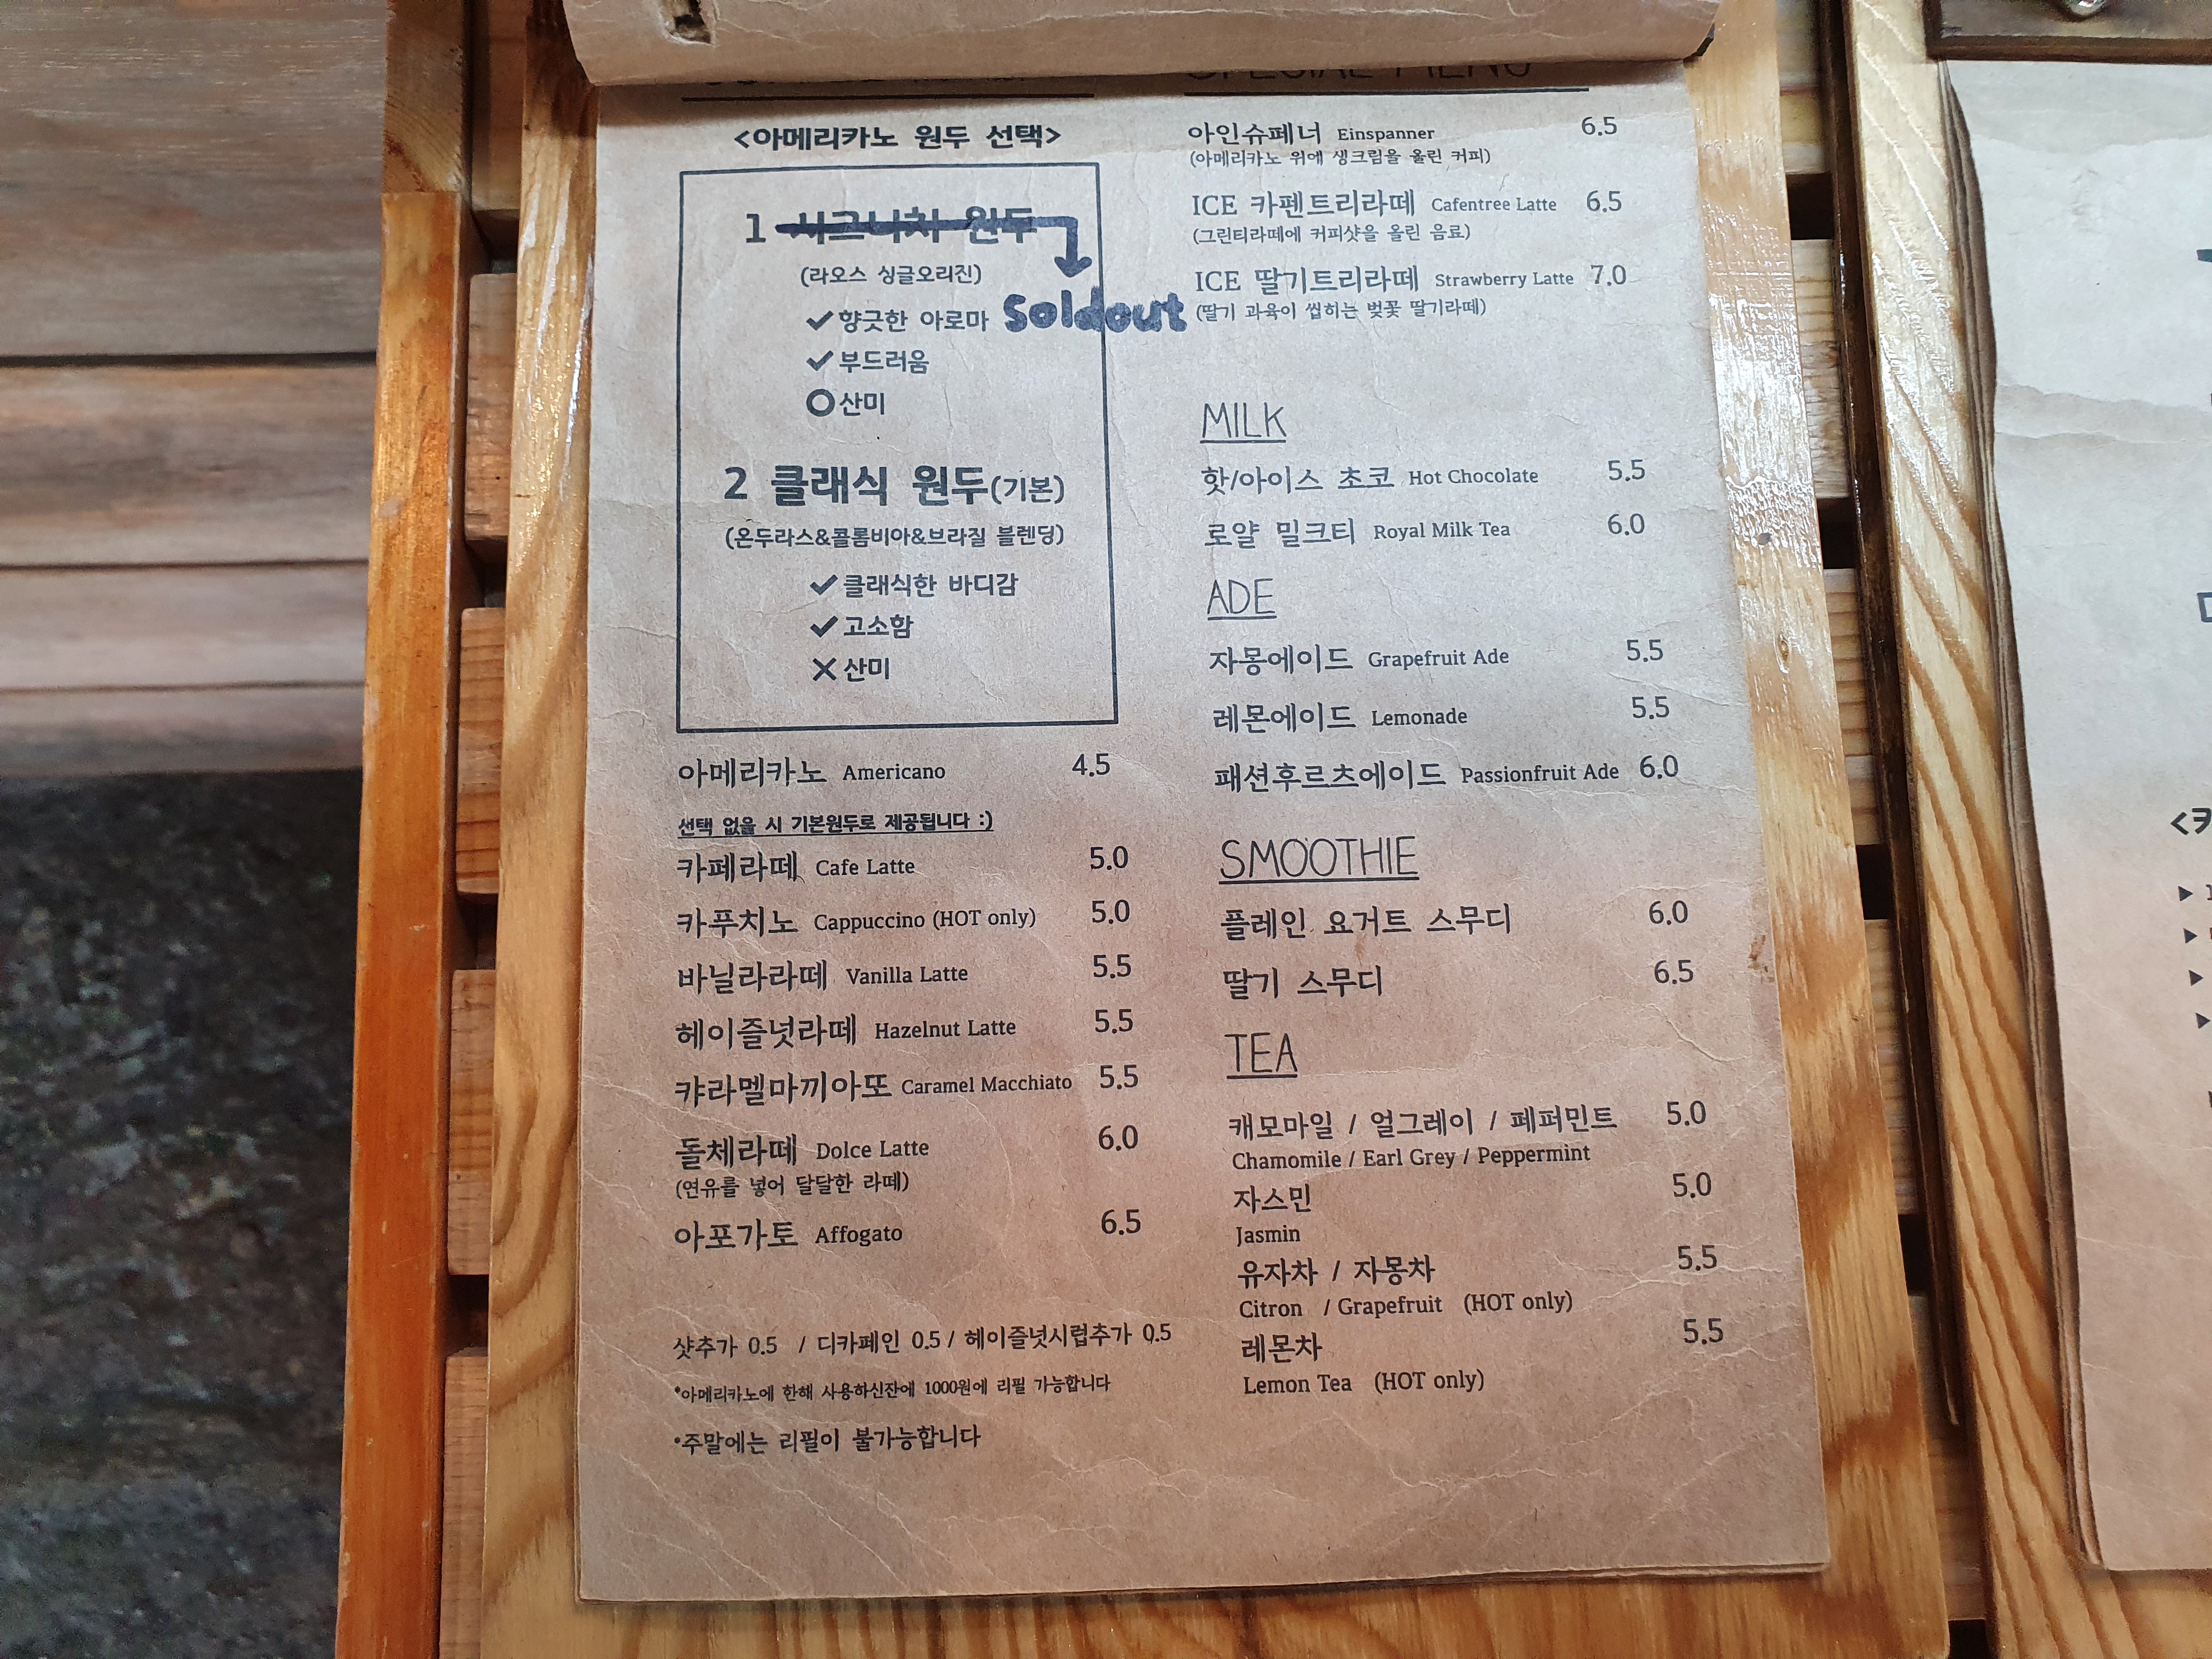 <아메리카노 원두 선택>
1 시그니처 원두
(라오스 싱글오리진)
✓향긋한 아로마
Soldout
✓부드러움
○산미
2 클래식 원두(기본)
(온두라스&콜롬비아&브라질 블렌딩)
✓클래식한 바디감
✓고소함
✕산미
아메리카노 Americano 4.5
선택 없을 시 기본원두로 제공됩니다 :)
카페라떼 Cafe Latte 5.0
카푸치노 Cappuccino (HOT only) 5.0
바닐라라떼 Vanilla Latte 5.5
헤이즐넛라떼 Hazelnut Latte 5.5
캬라멜마끼아또 Caramel Macchiato 5.5
돌체라떼 Dolce Latte 6.0
(연유를 넣어 달달한 라떼)
아포가토 Affogato 6.5
샷추가 0.5 / 디카페인 0.5 / 헤이즐넛시럽추가 0.5
*아메리카노에 한해 사용하신잔에 1000원에 리필 가능합니다
*주말에는 리필이 불가능합니다
SPECIAL MENU
아인슈페너 Einspanner 6.5
(아메리카노 위에 생크림을 올린 커피)
ICE 카펜트리라떼 Cafentree Latte 6.5
(그린티라떼에 커피샷을 올린 음료)
ICE 딸기트리라떼 Strawberry Latte 7.0
(딸기 과육이 씹히는 벚꽃 딸기라떼)
MILK
핫/아이스 초코 Hot Chocolate 5.5
로얄 밀크티 Royal Milk Tea 6.0
ADE
자몽에이드 Grapefruit Ade 5.5
레몬에이드 Lemonade 5.5
패션후르츠에이드 Passionfruit Ade 6.0
SMOOTHIE
플레인 요거트 스무디 6.0
딸기 스무디 6.5
TEA
캐모마일 / 얼그레이 / 페퍼민트 5.0
Chamomile / Earl Grey / Peppermint
자스민 5.0
Jasmin
유자차 / 자몽차 5.5
Citron / Grapefruit (HOT only)
레몬차 5.5
Lemon Tea (HOT only)